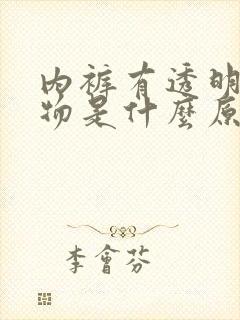 內裤有透明
物是什麼原
李會芬